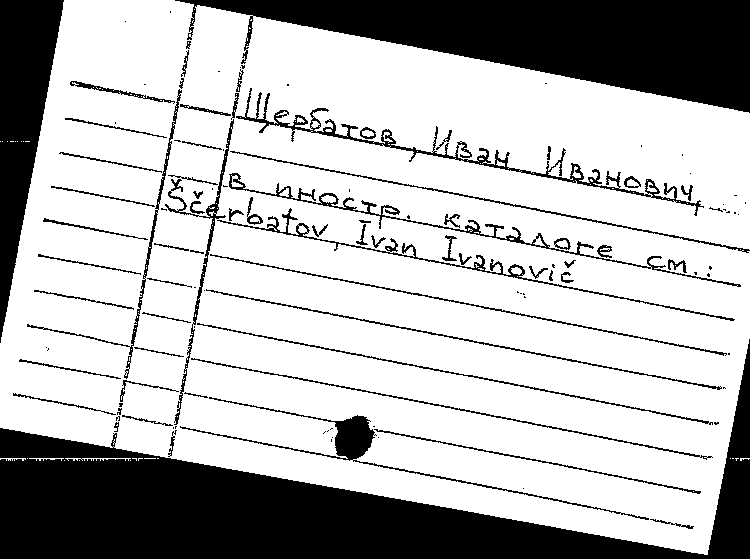 Щербатов, Иван Иванович,
в иностр. каталоге см.:
Ščerbatov, Ivan Ivanovič